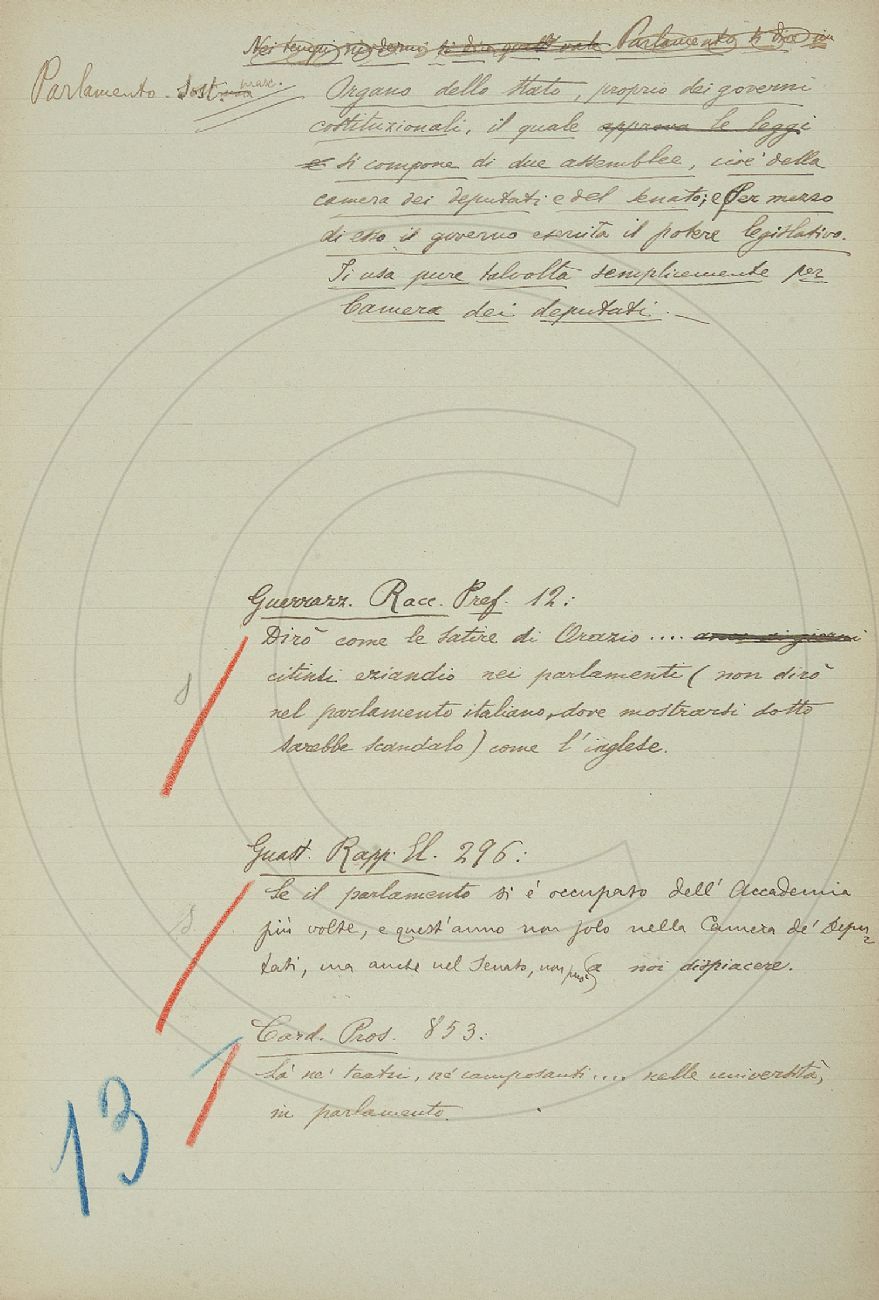 Nei tempi moderni si dice quest vale Parlamento si dice un
Parlamento. Sost. masc.
Organo dello Stato, proprio dei governi
costituzionali, il quale approva le leggi
e si compone di due assemblee, cioè della
camera dei deputati e del Senato; e Per mezzo
di esso il governo esercita il potere legislativo.
Si usa pure talvolta semplicemente per
Camera dei deputati. —
Guerrazz. Racc. Pref. 12:
Dirò come le satire di Orazio ....
citinsi eziandio nei parlamenti (non dirò
nel parlamento italiano, dove mostrarsi dotto
sarebbe scandalo) come l'inglese.
Guast. Rapp. El. 296:
Se il parlamento si è occupato dell'Accademia
più volte, e quest'anno non solo nella Camera de' Depu-
tati, ma anche nel Senato, non può a noi dispiacere.
Card. Pros. 853:
Là nè teatri, nè camposanti .... nelle università,
in parlamento.
13